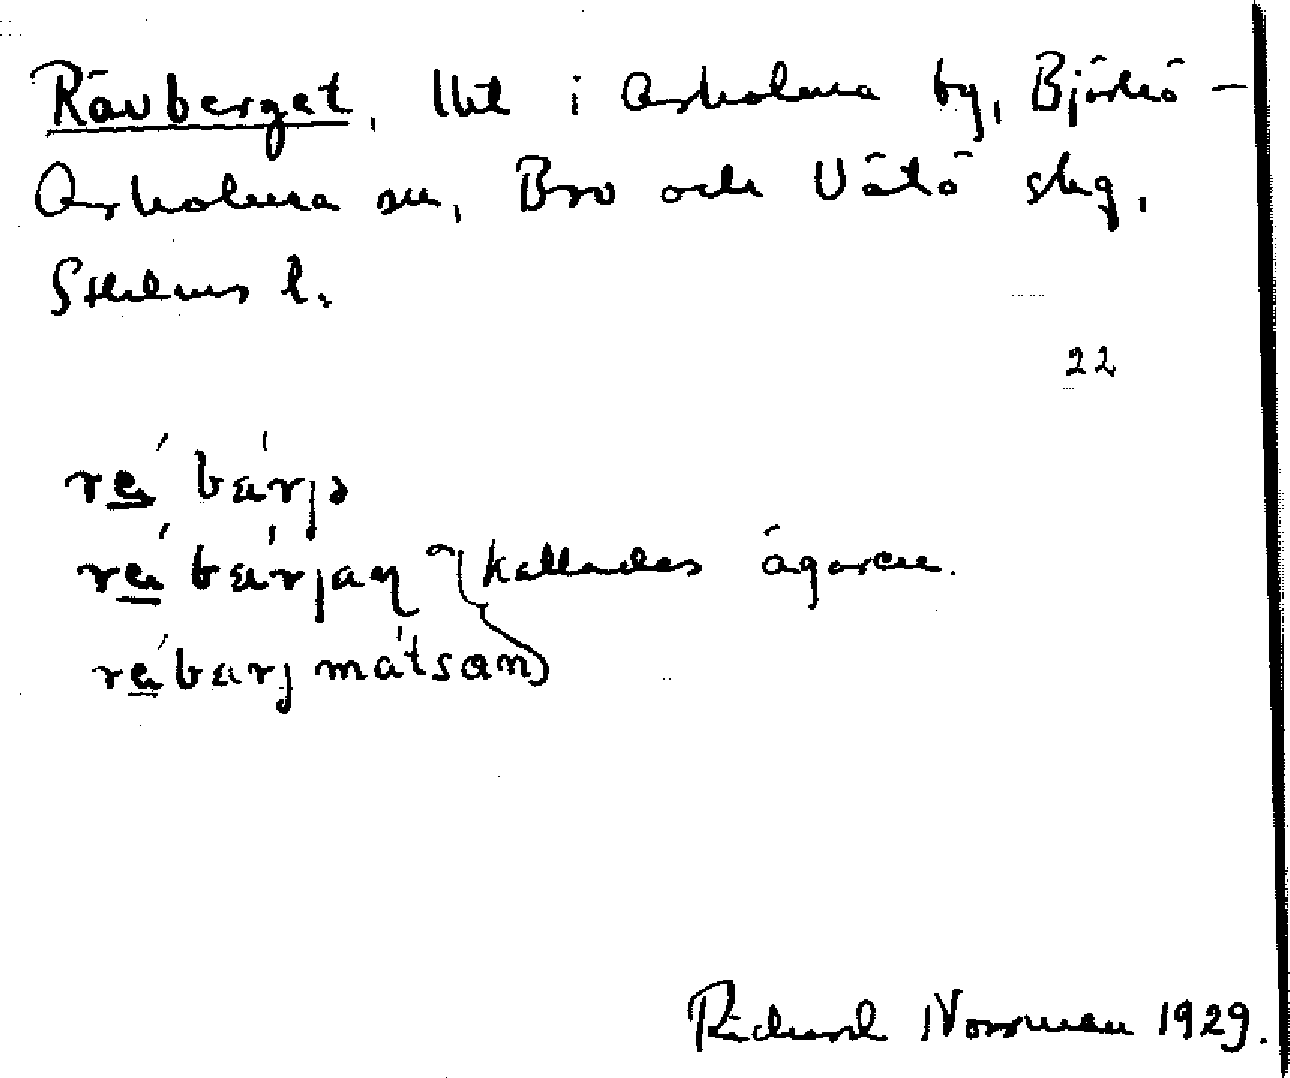 Rävberget, lht i Arholma by, Björkö-
Arholma sn, Bro och Vätö skg,
Sthlms l.
22
rɛ́ bárjə
rɛ́ bárjan } kallades ägaren.
rɛ́barj mátsan
Richard Norrman 1929.